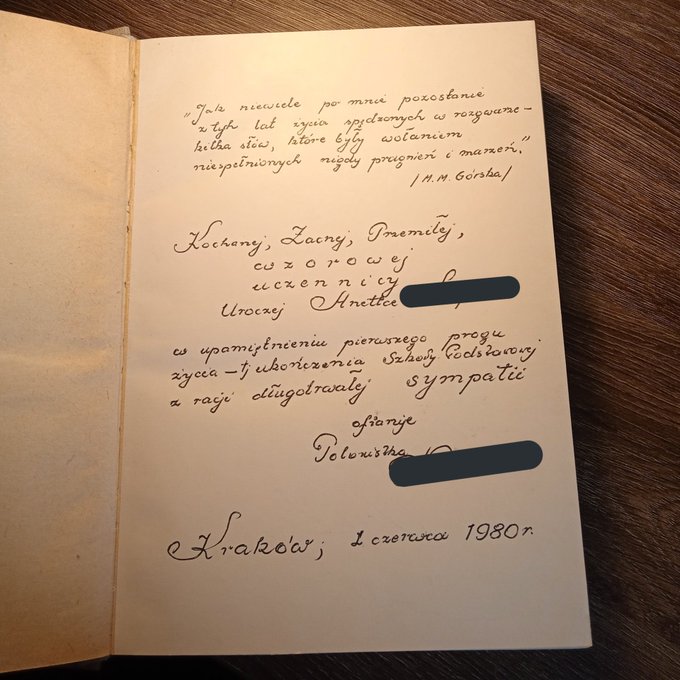 „Jak niewiele po mnie pozostanie
z tych lat życia spędzonych w rozgwarze –
kilka słów, które były wołaniem
niespełnionych nigdy pragnień i marzeń."
/M.M. Górska/
Kochanej, Zacnej, Przemiłej,
wzorowej
uczennicy
Uroczej Anetce
w upamiętnieniu pierwszego progu
życia – tj ukończenia Szkoły Podstawowej
z racji długotrwałej sympatii
ofiaruje
Polonistka
Kraków, 1 czerwca 1980 r.